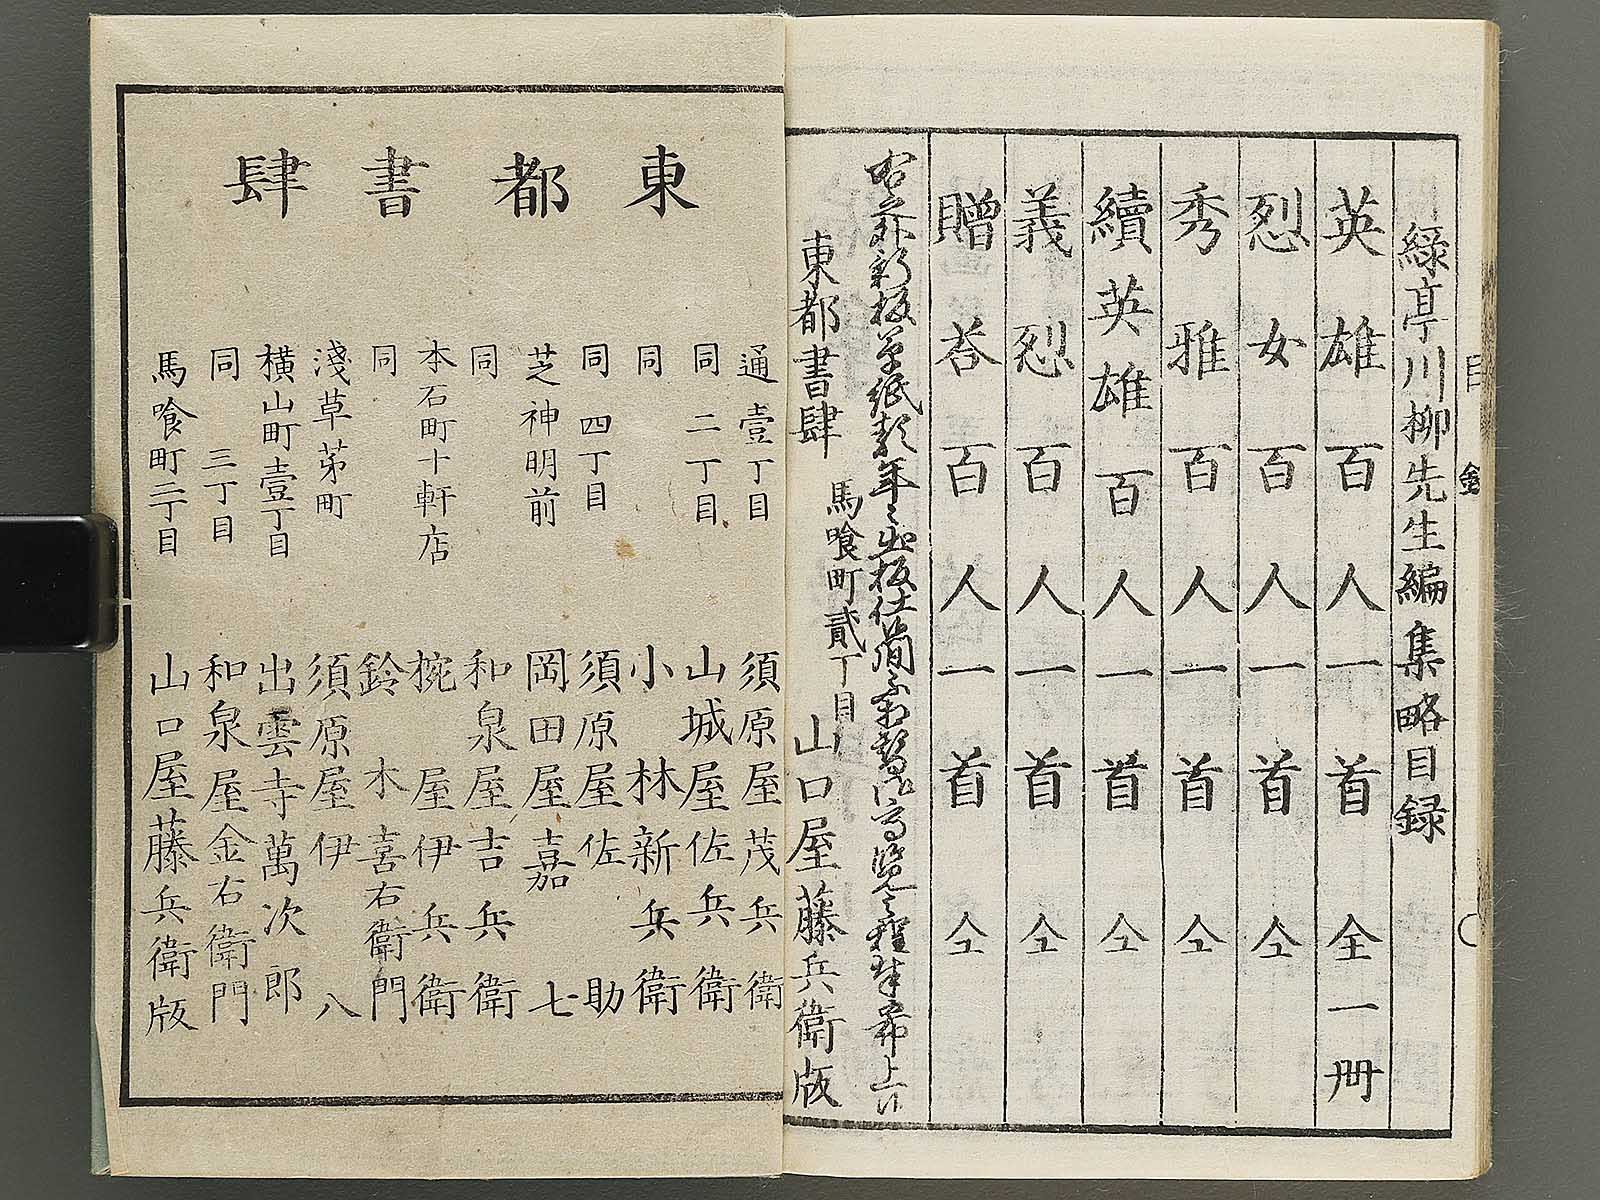 目録
緑亭川柳先生編集略目録
英雄百人一首 全一冊
烈女百人一首 仝
秀雅百人一首 仝
續英雄百人一首 仝
義烈百人一首 仝
贈答百人一首 仝
東都書肆 馬喰町貳丁目 山口屋藤兵衛版
東都書肆
通壹丁目 須原屋茂兵衛
同二丁目 山城屋佐兵衛
同 小林新兵衛
同四丁目 須原屋佐助
芝神明前 岡田屋嘉七
同 和泉屋吉兵衛
本石町十軒店 椀屋伊兵衛
同 鈴木喜右衛門
淺草茅町 須原屋伊八
横山町壹丁目 出雲寺萬次郎
同三丁目 和泉屋金右衛門
馬喰町二丁目 山口屋藤兵衛版